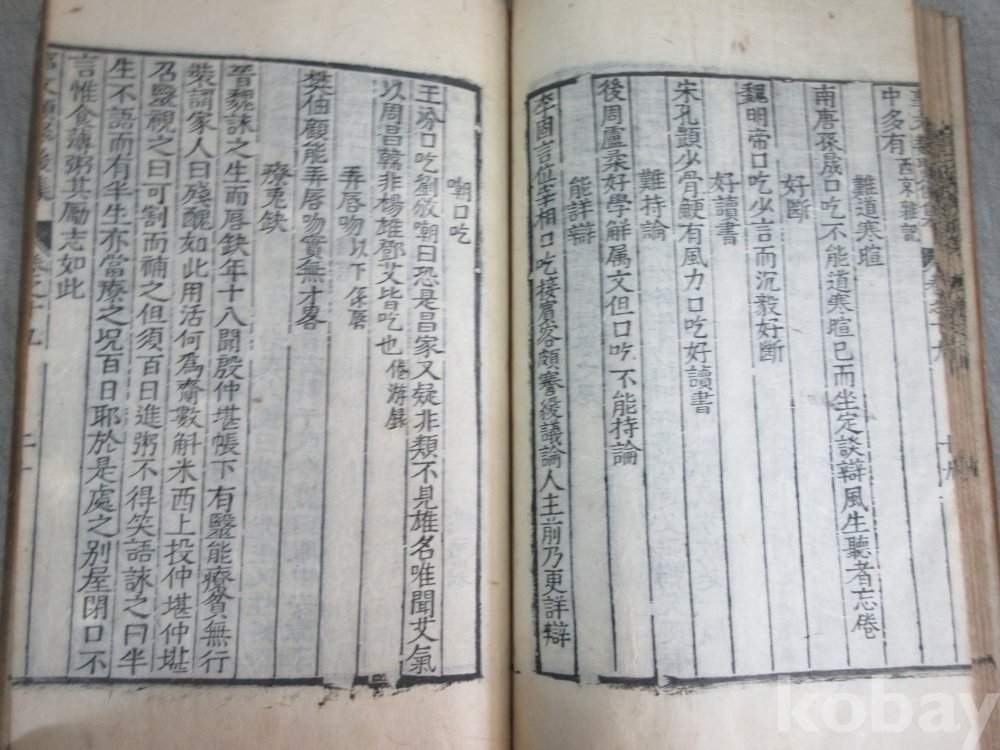 中多有西京雜記
難道寒暄
南唐孫晟口吃不能道寒暄已而坐定談辯風生聽者忘倦
好斷
魏明帝口吃少言而沉毅好斷
好讀書
宋孔顗少骨鯁有風力口吃好讀書
難持論
後周盧柔好學解属文但口吃不能持論
能詳辯
李固言位宰相口吃接賓客頗謇緩議論人主前乃更詳辯
嘲口吃
王汾口吃劉攽嘲曰恐是昌家又疑非類不見雄名唯聞艾氣
以周昌韓非楊雄鄧艾皆吃也倦游録
弄唇吻以下缺唇
樊伷顧能弄唇吻實無才畧
療兎缺
晉魏詠之生而唇缺年十八聞殷仲堪帳下有毉能療貧無行
裝謂家人曰殘醜如此用活何爲齎數斛米西上投仲堪仲堪
召毉視之曰可割而補之但須百日進粥不得笑語詠之曰半
生不語而有半生亦當療之况百日耶於是處之别屋閉口不
言惟食薄粥其厲志如此
卷之十九
二十
kobay